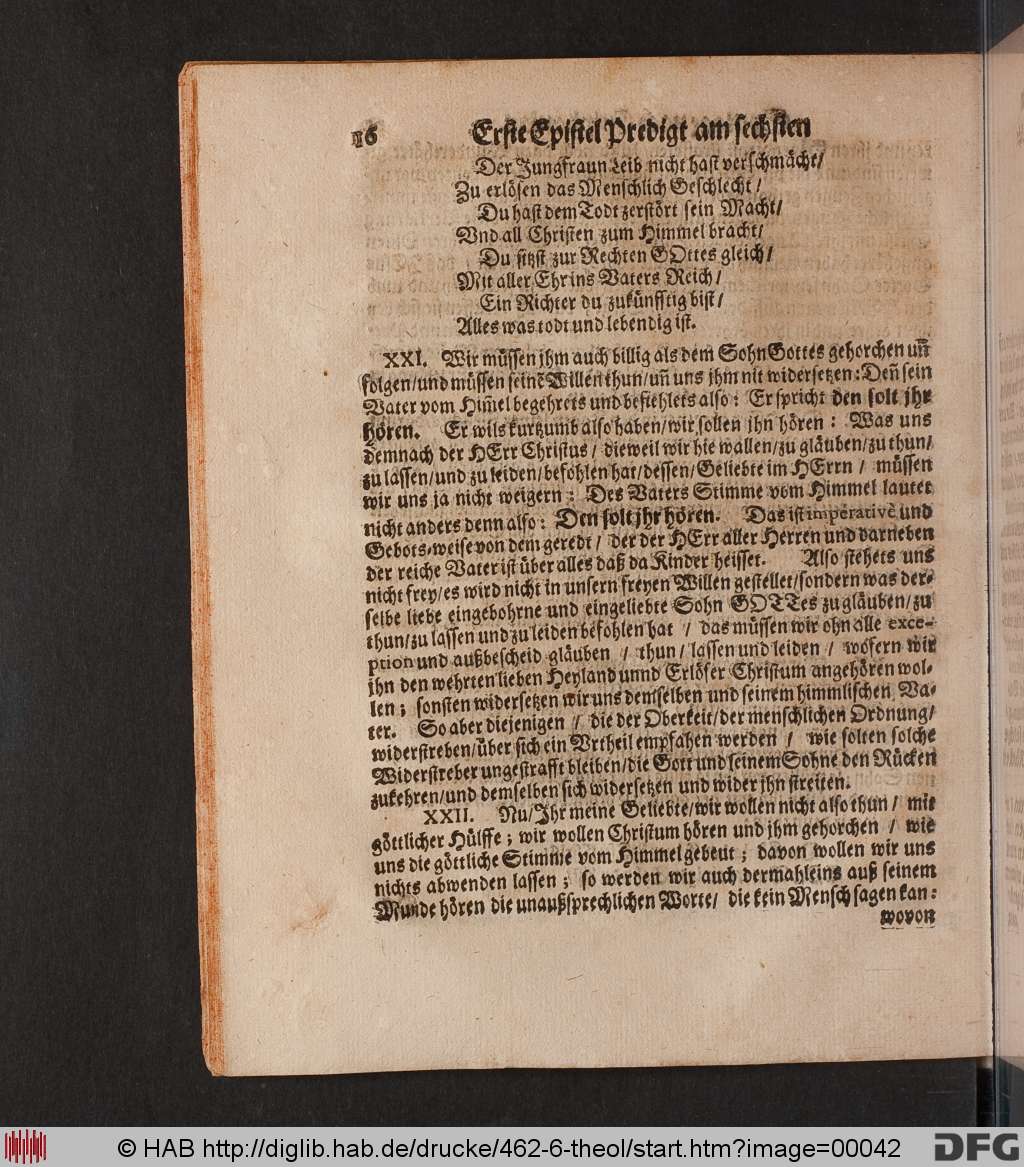 16 Erste Epistel Predigt am sechsten
Der Jungfraun Leib nicht hast verschmächt/
Zu erlösen das Menschlich Geschlecht/
Du hast dem Todt zerstört sein Macht/
Vnd all Christen zum Himmel bracht/
Du sitzst zur Rechten GOttes gleich/
Mit aller Ehr ins Vaters Reich/
Ein Richter du zukünfftig bist/
Alles was todt und lebendig ist.
XXI. Wir müssen jhm auch billig als dem Sohn Gottes gehorchen uñ
folgen/und müssen seinẽ Willen thun/uñ uns jhm nit widersetzen: Deñ sein
Vater vom Him̃el begehrets und befiehlets also: Er spricht den solt jhr
hören. Er wils kurtzumb also haben/wir sollen jhn hören: Was uns
demnach der HErr Christus/ dieweil wir hie wallen/zu gläuben/zu thun/
zu lassen/und zu leiden/befohlen hat/dessen/Geliebte im HErrn/ müssen
wir uns ja nicht weigern: Des Vaters Stimme vom Himmel lautet
nicht anders denn also: Den solt jhr hören. Das ist imperativè und
Gebots-weise von dem geredt/ der der HErr aller Herren und darneben
der reiche Vater ist über alles daß da Kinder heisset. Also stehets uns
nicht frey/es wird nicht in unsern freyen Willen gestellet/sondern was der-
selbe liebe eingebohrne und eingeliebte Sohn GOTTes zu gläuben/zu
thun/zu lassen und zu leiden befohlen hat/ das müssen wir ohn alle exce-
ption und außbescheid gläuben/ thun/ lassen und leiden/ wofern wir
jhn den wehrten lieben Heyland unnd Erlöser Christum angehören wol-
len; sonsten widersetzen wir uns demselben und seinem himmlischen Va-
ter. So aber diejenigen/ die der Oberkeit/der menschlichen Ordnung/
widerstreben/über sich ein Vrtheil empfahen werden/ wie solten solche
Widerstreber ungestrafft bleiben/die Gott und seinem Sohne den Rücken
zukehren/und demselben sich widersetzen und wider jhn streiten.
XXII. Nu/Jhr meine Geliebte/wir wollen nicht also thun/ mit
göttlicher Hülffe; wir wollen Christum hören und jhm gehorchen/ wie
uns die göttliche Stimme vom Himmel gebeut; davon wollen wir uns
nichts abwenden lassen; so werden wir auch dermahleins auß seinem
Munde hören die unaußsprechlichen Worte/ die kein Mensch sagen kan:
wovon
© HAB http://diglib.hab.de/drucke/462-6-theol/start.htm?image=00042
DFG